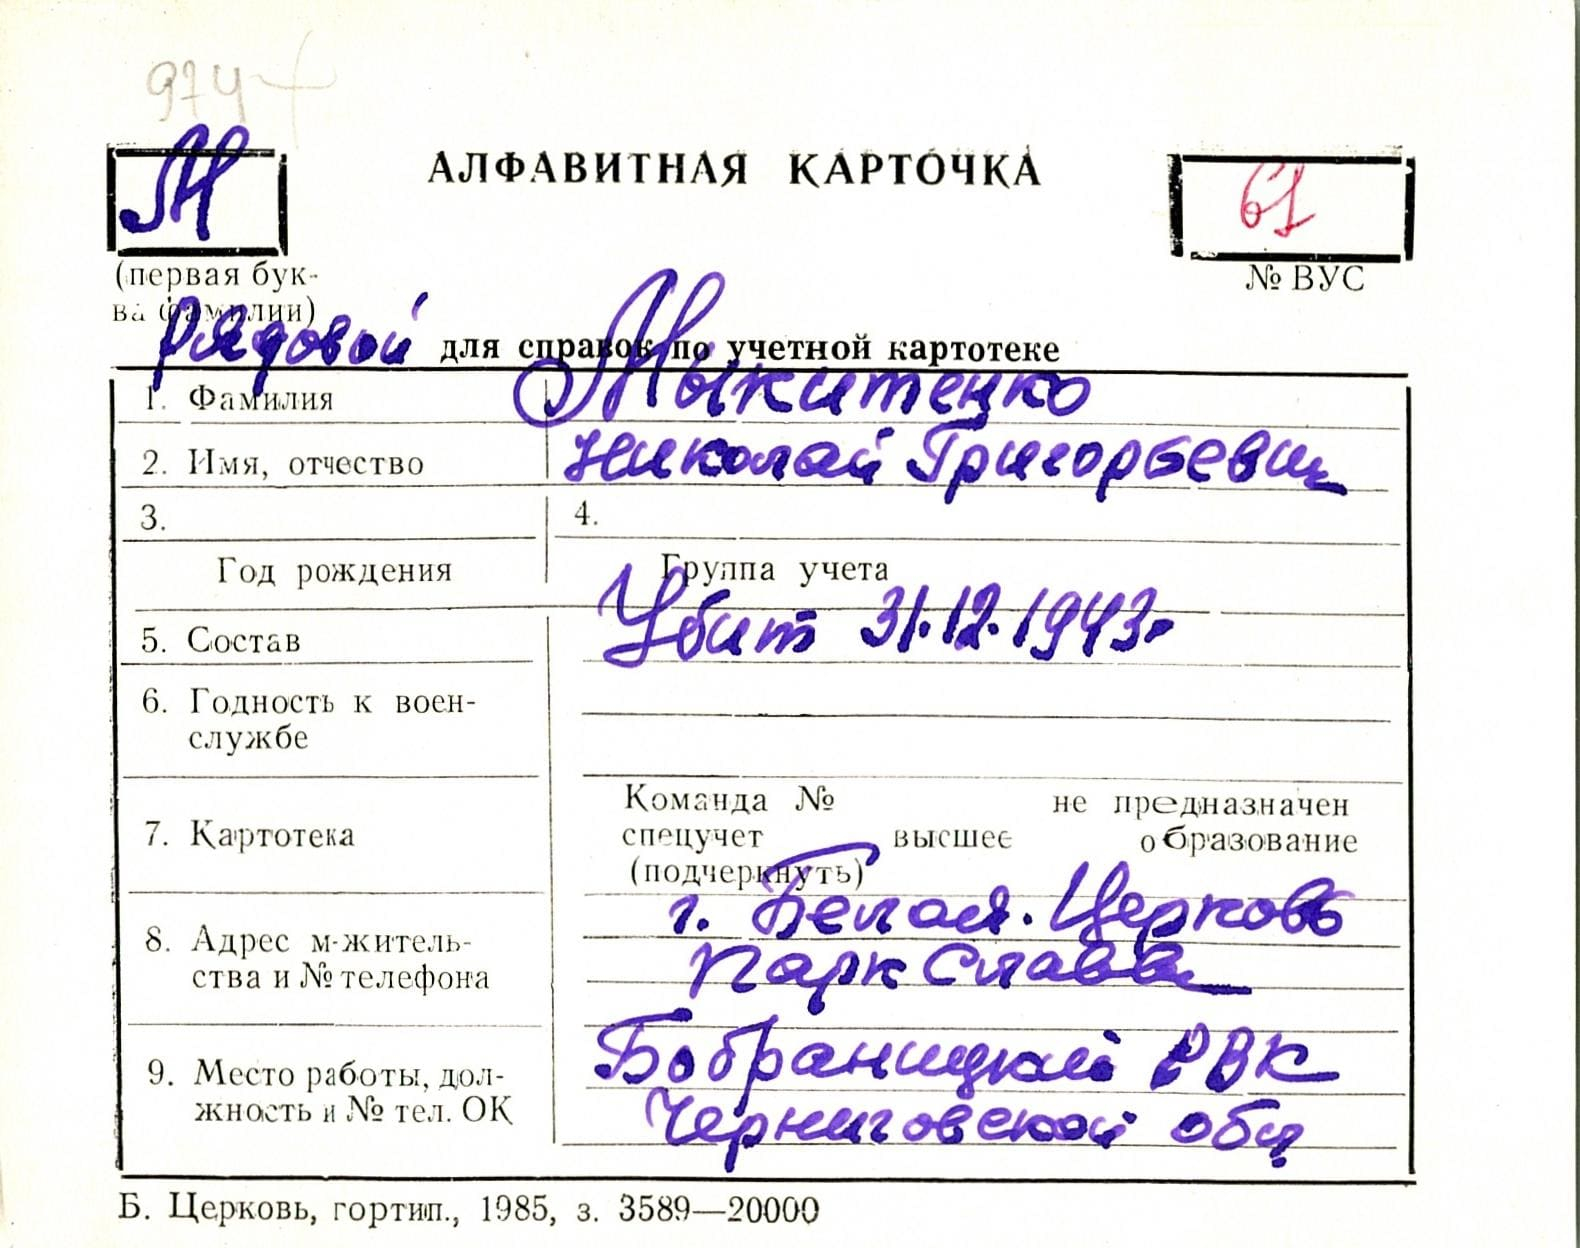 974
М
АЛФАВИТНАЯ КАРТОЧКА
61
(первая бук-
ва фамилии)
№ ВУС
Рядовой для справок по учетной картотеке
1. Фамилия Мыкитенко
2. Имя, отчество Николай Григорьевич
3. 4.
Год рождения Группа учета
5. Состав Убит 31.12.1943г
6. Годность к воен-
службе
Команда № не предназначен
7. Картотека спецучет высшее образование
(подчеркнуть)
г. Белая. Церковь
8. Адрес м-житель-
ства и № телефона Парк Славы
Бобраницкий РВК
9. Место работы, дол-
жность и № тел. ОК Черниговской обл
Б. Церковь, гортип., 1985, з. 3589—20000